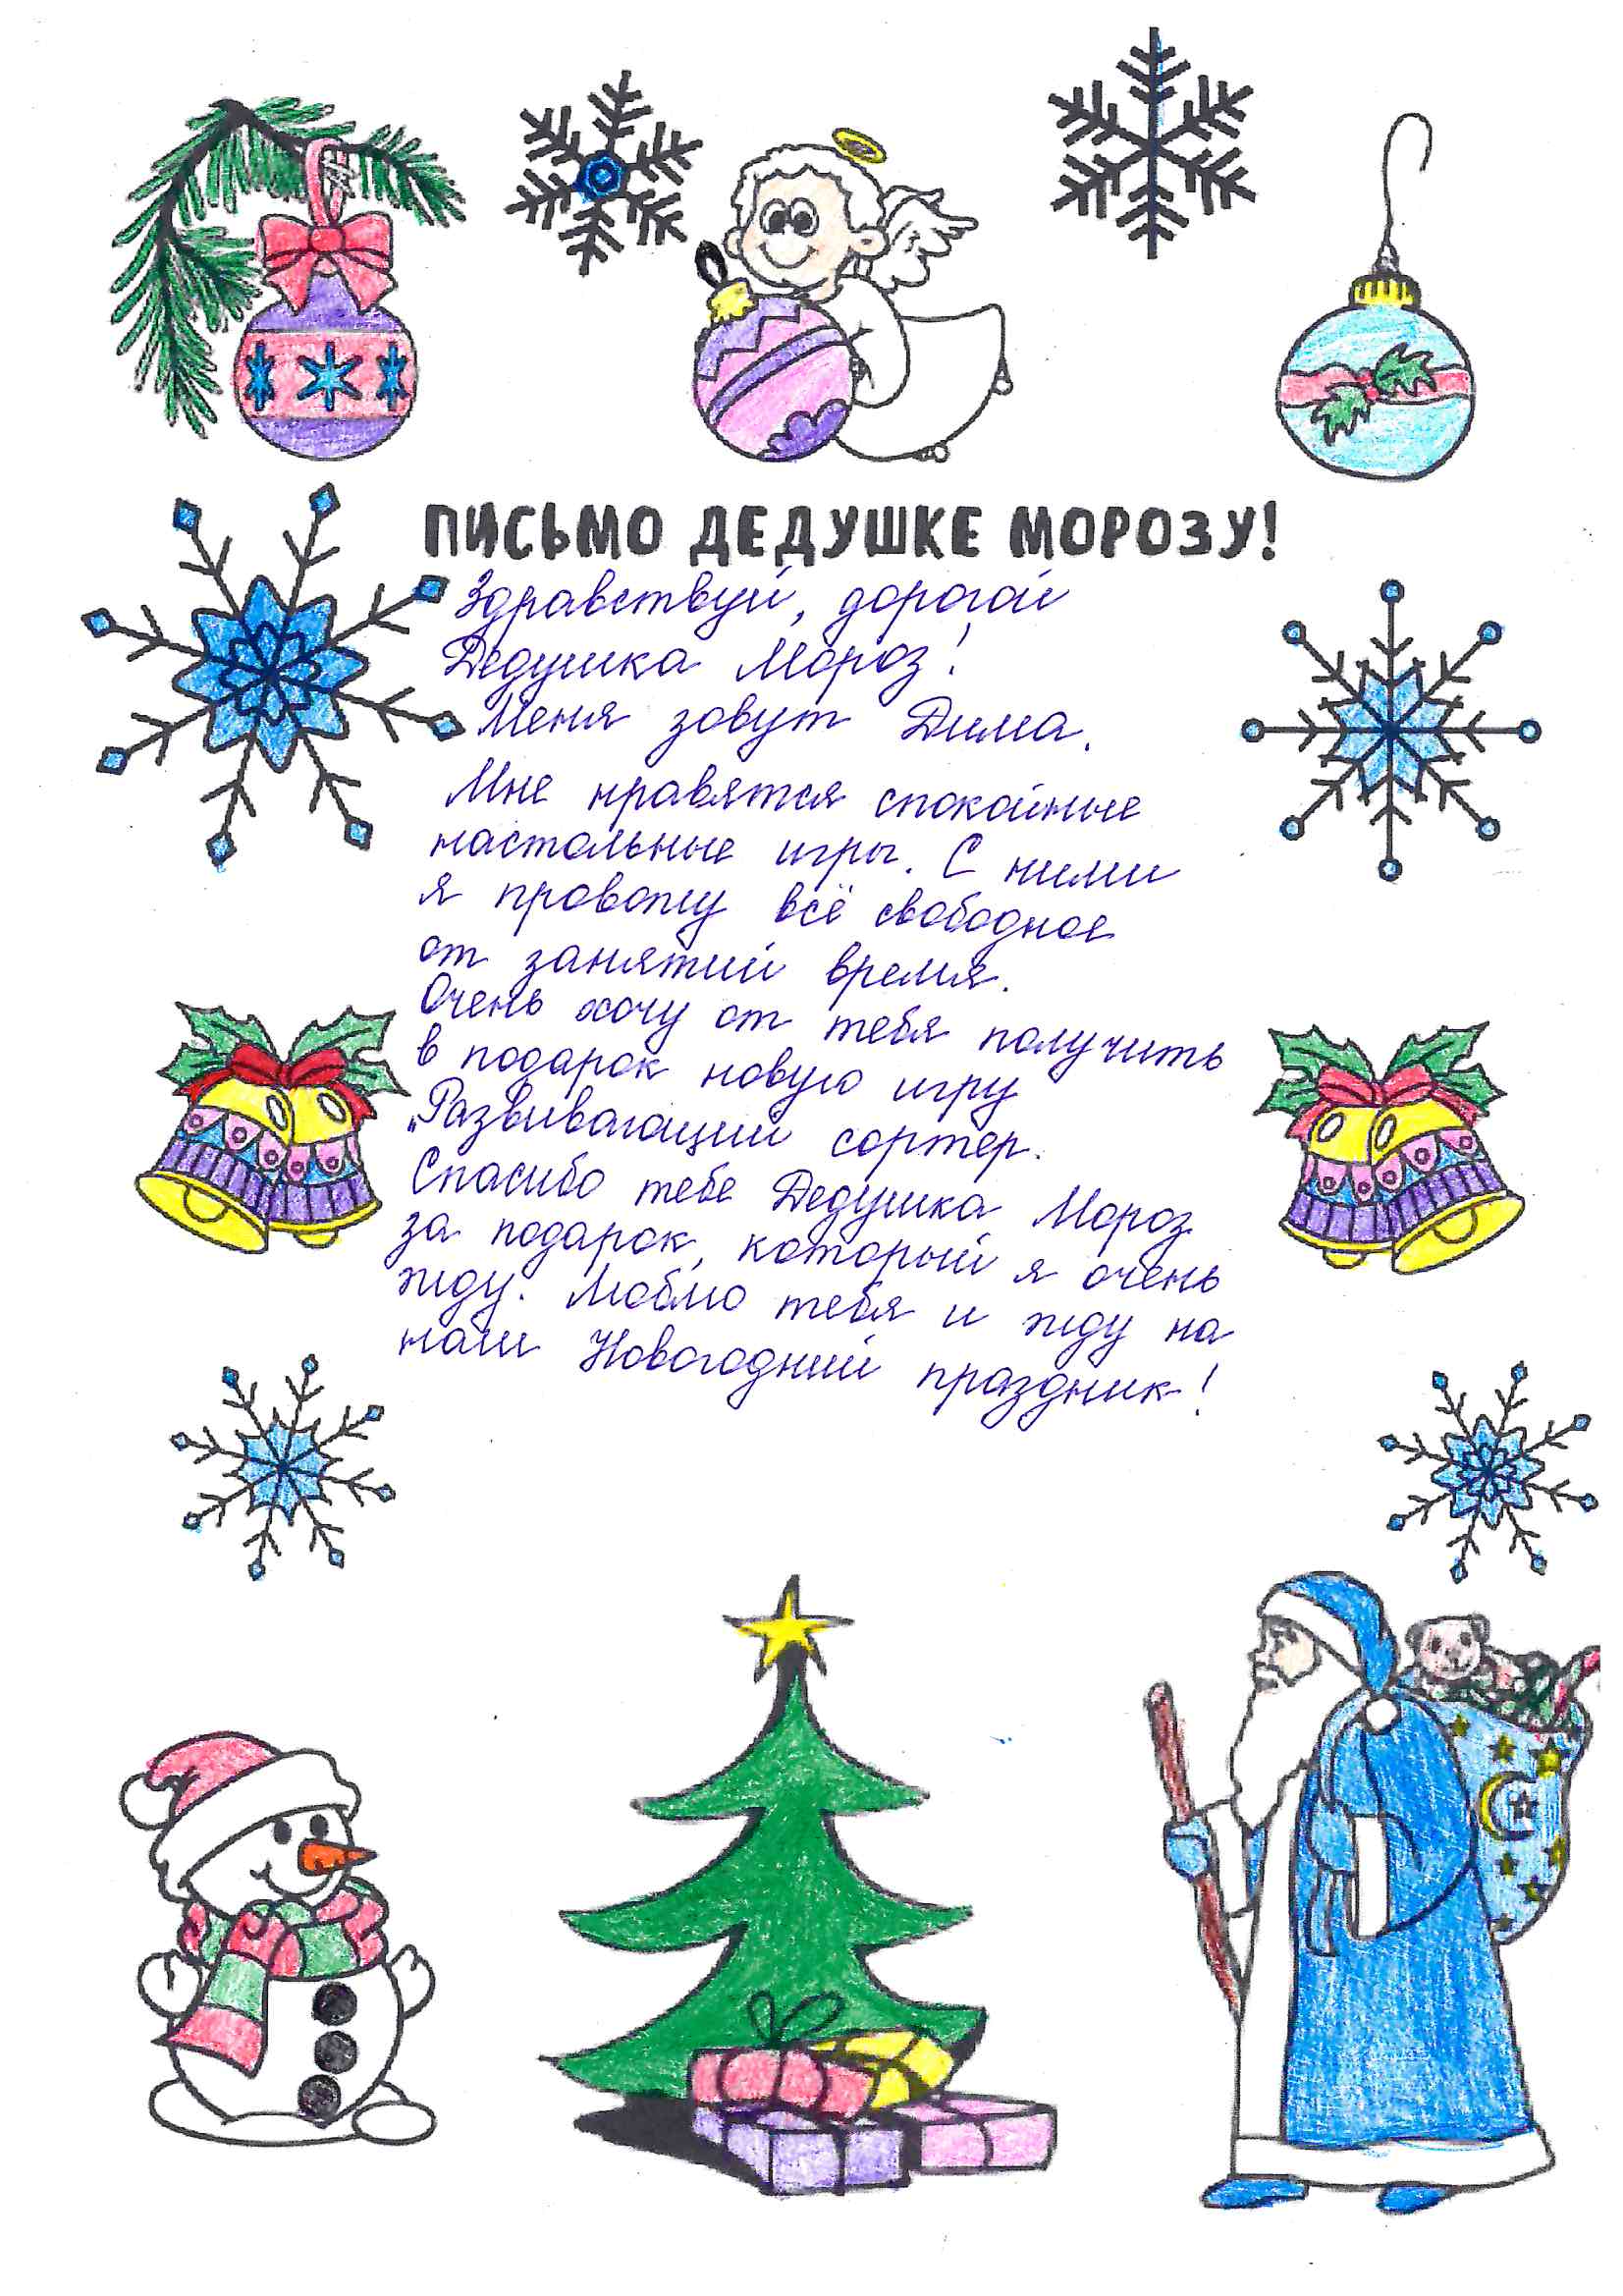 ПИСЬМО ДЕДУШКЕ МОРОЗУ!
Здравствуй, дорогой
Дедушка Мороз!
Меня зовут Дима.
Мне нравятся спокойные
настольные игры. С ними
я провожу всё свободное
от занятий время.
Очень хочу от тебя получить
в подарок новую игру
„Развивающий сортер.
Спасибо тебе Дедушка Мороз
за подарок, который я очень
жду. Люблю тебя и жду на
наш Новогодний праздник!